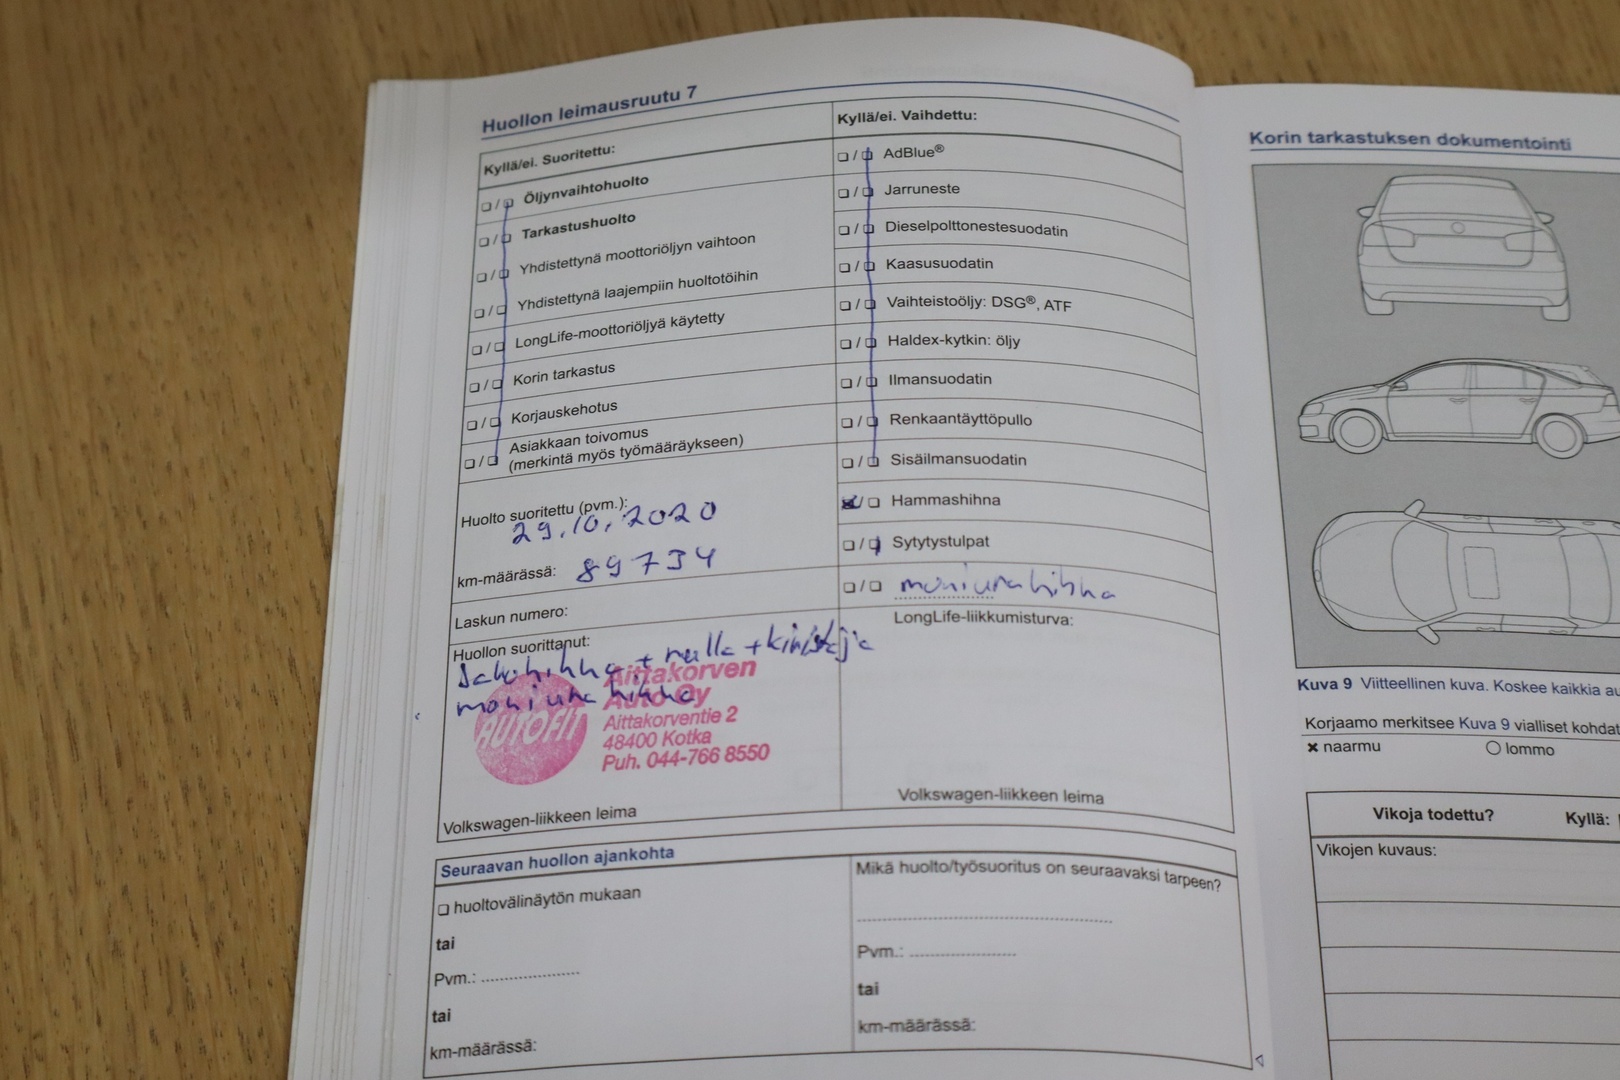 Huollon leimausruutu 7
Kyllä/ei. Suoritettu:
❏ / ❏ Öljynvaihtohuolto
❏ / ❏ Tarkastushuolto
❏ / ❏ Yhdistettynä moottoriöljyn vaihtoon
❏ / ❏ Yhdistettynä laajempiin huoltotöihin
❏ / ❏ LongLife-moottoriöljyä käytetty
❏ / ❏ Korin tarkastus
❏ / ❏ Korjauskehotus
❏ / ❏ Asiakkaan toivomus
(merkintä myös työmääräykseen)
Huolto suoritettu (pvm.):
29.10.2020
km-määrässä: 89734
Laskun numero:
Huollon suorittanut:
Jakohihna + rulla + kiristäjä
moniurahihna
AUTOFIT
Aittakorven
Auto Oy
Aittakorventie 2
48400 Kotka
Puh. 044-766 8550
Volkswagen-liikkeen leima
Kyllä/ei. Vaihdettu:
❏ / ❏ AdBlue®
❏ / ❏ Jarruneste
❏ / ❏ Dieselpolttonestesuodatin
❏ / ❏ Kaasusuodatin
❏ / ❏ Vaihteistoöljy: DSG®, ATF
❏ / ❏ Haldex-kytkin: öljy
❏ / ❏ Ilmansuodatin
❏ / ❏ Renkaantäyttöpullo
❏ / ❏ Sisäilmansuodatin
☒ / ❏ Hammashihna
❏ / ❏ Sytytystulpat
❏ / ❏ moniurahihna
LongLife-liikkumisturva:
Volkswagen-liikkeen leima
Seuraavan huollon ajankohta
❏ huoltovälinäytön mukaan
tai
Pvm.:
tai
km-määrässä:
Mikä huolto/työsuoritus on seuraavaksi tarpeen?
Pvm.:
tai
km-määrässä:
Korin tarkastuksen dokumentointi
Kuva 9 Viitteellinen kuva. Koskee kaikkia
Korjaamo merkitsee Kuva 9 vialliset kohdat
✖ naarmu
○ lommo
Vikoja todettu? Kyllä:
Vikojen kuvaus: